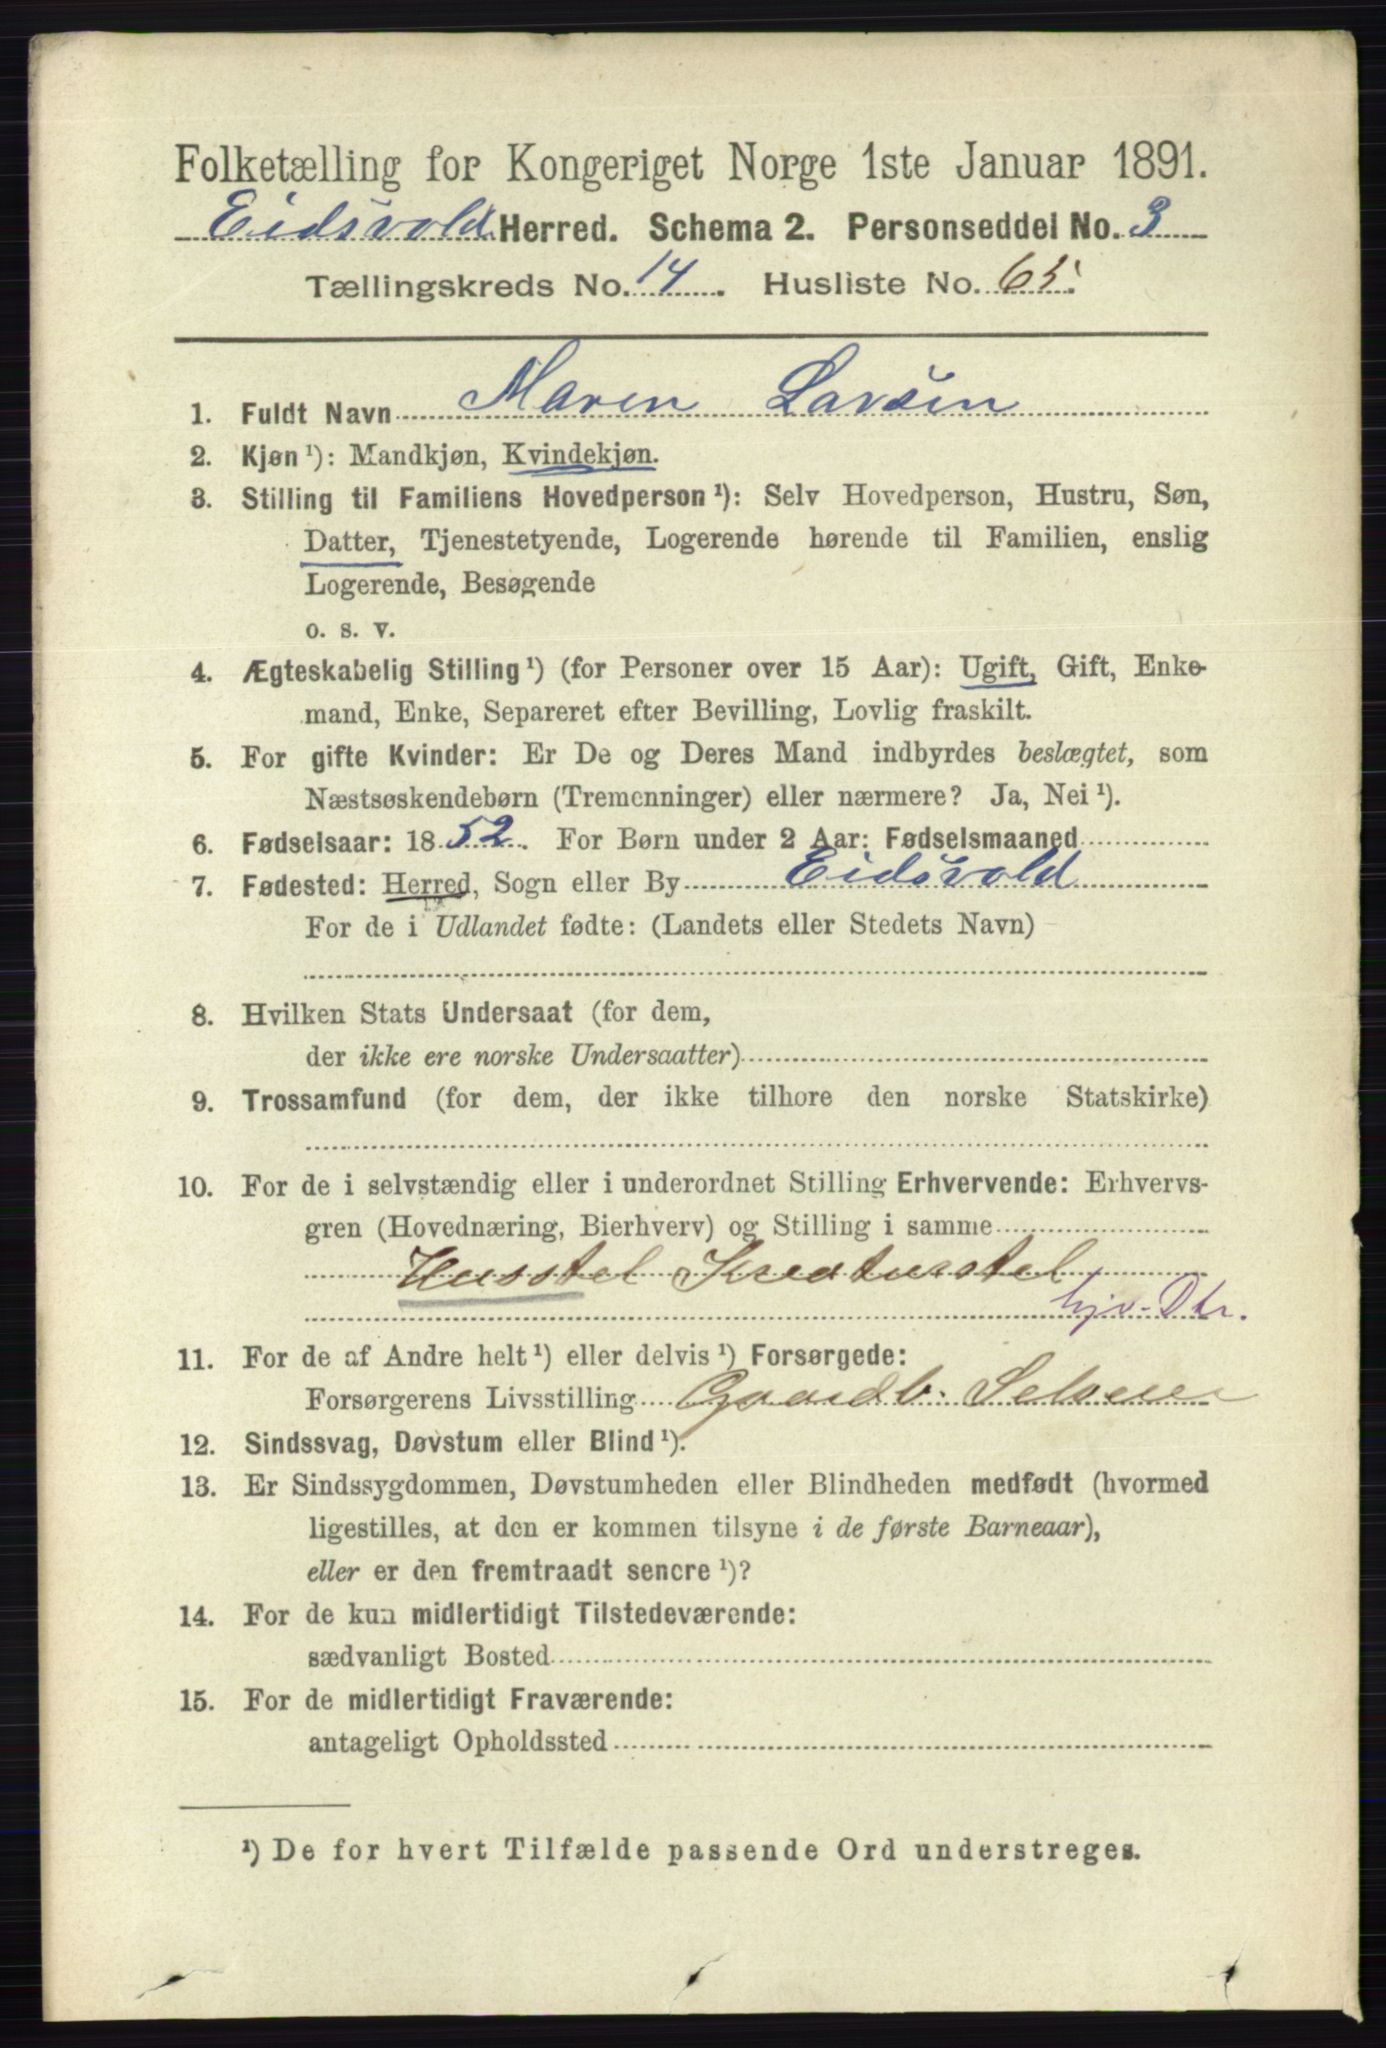 Folketælling for Kongeriget Norge 1ste Januar 1891.
Eidsvold Herred. Schema 2. Personseddel No. 3
Tællingskreds No. 14. Husliste No. 65.
1. Fuldt Navn Maren Larsen
2. Kjøn ¹): Mandkjøn, Kvindekjøn.
3. Stilling til Familiens Hovedperson ¹): Selv Hovedperson, Hustru, Søn,
Datter, Tjenestetyende, Logerende hørende til Familien, enslig
Logerende, Besøgende
o. s. v.
4. Ægteskabelig Stilling ¹) (for Personer over 15 Aar): Ugift, Gift, Enke-
mand, Enke, Separeret efter Bevilling, Lovlig fraskilt.
5. For gifte Kvinder: Er De og Deres Mand indbyrdes beslægtet, som
Næstsøskendebørn (Tremenninger) eller nærmere? Ja, Nei ¹).
6. Fødselsaar: 1852. For Børn under 2 Aar: Fødselsmaaned
7. Fødested: Herred, Sogn eller By Eidsvold
For de i Udlandet fødte: (Landets eller Stedets Navn)
8. Hvilken Stats Undersaat (for dem,
der ikke ere norske Undersaatter)
9. Trossamfund (for dem, der ikke tilhore den norske Statskirke)
10. For de i selvstændig eller i underordnet Stilling Erhvervende: Erhvervs-
gren (Hovednæring, Bierhverv) og Stilling i samme
Husstel Kreaturstel
hjv. Dtr.
11. For de af Andre helt ¹) eller delvis ¹) Forsørgede:
Forsørgerens Livsstilling Gaardb. Selveier
12. Sindssvag, Døvstum eller Blind ¹).
13. Er Sindssygdommen, Døvstumheden eller Blindheden medfødt (hvormed
ligestilles, at den er kommen tilsyne i de første Barneaar),
eller er den fremtraadt senere ¹)?
14. For de kun midlertidigt Tilstedeværende:
sædvanligt Bosted
15. For de midlertidigt Fraværende:
antageligt Opholdssted
¹) De for hvert Tilfælde passende Ord understreges.